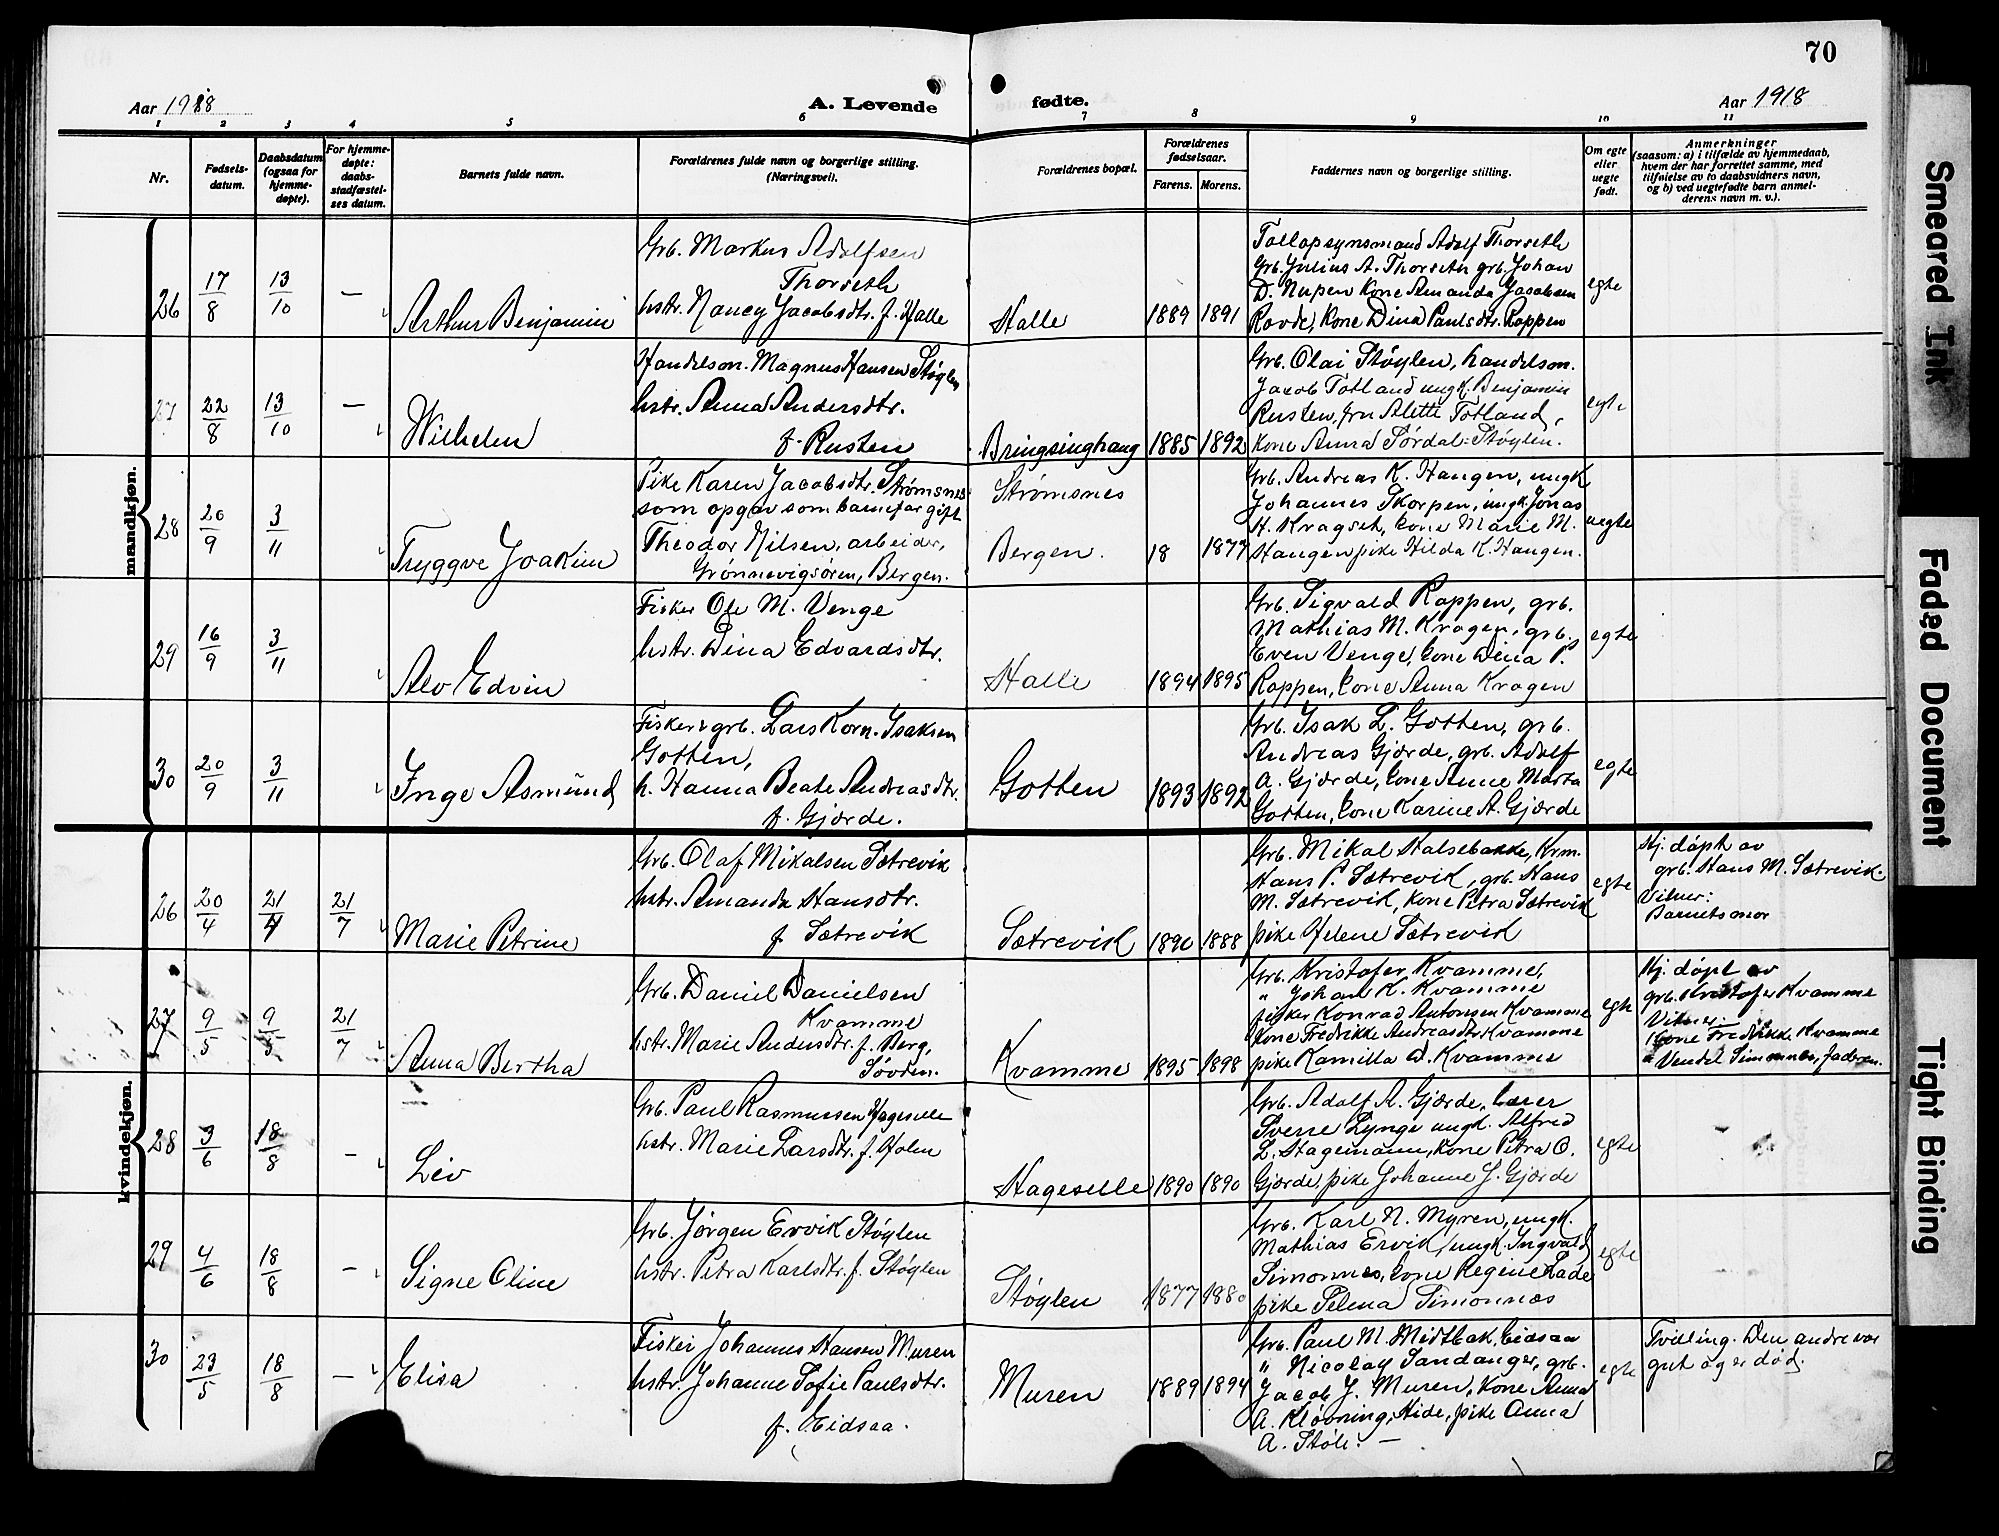 70
Aar 1918
A. Levende
fødte.
Aar 1918
1 2 3 4 5 6 7 8 9 10 11
Nr.
Fødsels-
datum.
Daabsdatum
(ogsaa for
hjemme-
døpte).
For hjemme-
døpte:
daabs-
stadfæstel-
ses datum.
Barnets fulde navn.
Forældrenes fulde navn og borgerlige stilling.
(Næringsvei).
Forældrenes bopæl.
Forældrenes
fødselsaar.
Farens. Morens.
Faddernes navn og borgerlige stilling.
Om egte
eller
uegte
født.
Anmerkninger
(saasom: a) i tilfælde av hjemmedaab,
hvem der har forrettet samme, med
tilføielse av to daabsvidners navn,
og b) ved uegtefødte barn anmel-
derens navn m. v.).
mandkjøn.
26
17/8
13/10
—
Arthur Benjamin
Grb. Markus Adolfsen
Thorseth
hstr. Nancy Jacobsdtr. f. Halle
Halle
1889 1891
Tollopsynsmand Adolf Thorseth
Grb. Julius A. Thorseth grb. Johan
D. Nupen Kone Amanda Jacobsen
Rovde, Kone Dina Paulsdtr. Roppen
egte
27
22/8
13/10
—
Wilhelm
Handelsm. Magnus Hansen Støylen
hstr. Anna Andersdtr.
f. Rusten
Bringsinghaug
1885 1892
Grb. Olai Støylen, handelsm.
Jacob Totland ungk. Benjamin
Rusten, fru Alette Totland,
Kone Anna Sørdal-Støylen.
egte
28
20/9
3/11
Tryggve Joakim
Pike Karen Jacobsdtr. Strømsnes
som opgav som barnefar gift
Theodor Nilsen, arbeider,
Grønnevigsøren, Bergen.
Strømsnes
Bergen.
18 1877
Grb. Andreas K. Haugen, ungk
Johannes Skorpen, ungk Jonas
H. Kragset, Kone Marie M.
Haugen pike Hilda K. Haugen.
uegte
29
16/9
3/11
Alv Edvin
Fisker Ole M. Venge
hstr. Dina Edvardsdtr.
Halle
1894 1895
Grb. Sigvald Roppen, grb.
Mathias M. Kragen, grb.
Even Venge, Kone Dina P.
Roppen, Kone Anna Kragen
egte
30
20/9
3/11
Inge Asmund
Fisker & grb. Lars Korn. Isaksen
Gotten,
h. Hanna Beate Andreasdtr.
f. Gjærde.
Gotten
1893 1892
Grb. Isak L. Gotten, grb.
Andreas Gjærde, grb. Adolf
A. Gjærde, Kone Anne Marta
Gotten, Kone Karine A. Gjærde
egte
kvindekjøn.
26
20/4
21/4
21/7
Marie Petrine
Grb. Olaf Mikalsen Sætrevik
hstr. Amanda Hansdtr.
f. Sætrevik
Sætrevik
1890 1888
Grb. Mikal Halsebakke, Krm.
Hans P. Sætrevik, grb. Hans
M. Sætrevik, Kone Petra Sætrevik
pike Helene Sætrevik
egte
Hj. døpt av
grb. Hans M. Sætrevik.
Vitner:
Barnets mor
27
9/5
9/5
21/7
Anna Bertha
Grb. Daniel Danielsen
Kvamme
hstr. Marie Andersdtr. f. Berg,
Søvden.
Kvamme
1895 1898
Grb. Kristofer Kvamme,
" Johan K. Kvamme
fisker Konrad Antonsen Kvamme
Kone Fredrikke Andreasdtr Kvamme
pike Kamilla D. Kvamme
egte
Hj. døpt av
grb. Kristofer Kvamme
Vitner:
Kone Fredrikke Kvamme
" Vendel Simonnes, faderen.
28
3/6
18/8
—
Liv
Grb. Paul Rasmussen Hageselle
hstr. Marie Larsdtr. f. Holm
Hageselle
1890 1890
Grb. Adolf A. Gjærde, lærer
Sverre Lynge ungk. Alfred
L. Stagemann, Kone Petra O.
Gjærde, pike Johanne J. Gjærde
egte
29
4/6
18/8
—
Signe Oline
Grb. Jørgen Ervik Støylen
hstr. Petra Karlsdtr. f. Støylen
Støylen
1877 1880
Grb. Karl N. Myren, ungk.
Mathias Ervik, ungk. Ingvald
Simonnes, Kone Regine Lade
pike Selena Simonnæs
egte
30
23/5
18/8
—
Elisa
Fisker Johannes Hansen Muren
hstr. Johanne Sofie Paulsdtr.
f. Eidsaa.
Muren
1889 1894
Grb. Paul M. Midtbak, Eidsaa
" Nicolay Sandanger, grb.
Jacob J. Muren, Kone Anna
A. Kløvning, Hide, pike Anna
A. Støle. —
egte
Tvilling. Den andre var
gut og er død.
Smeared Ink
Faded Document
Tight Binding